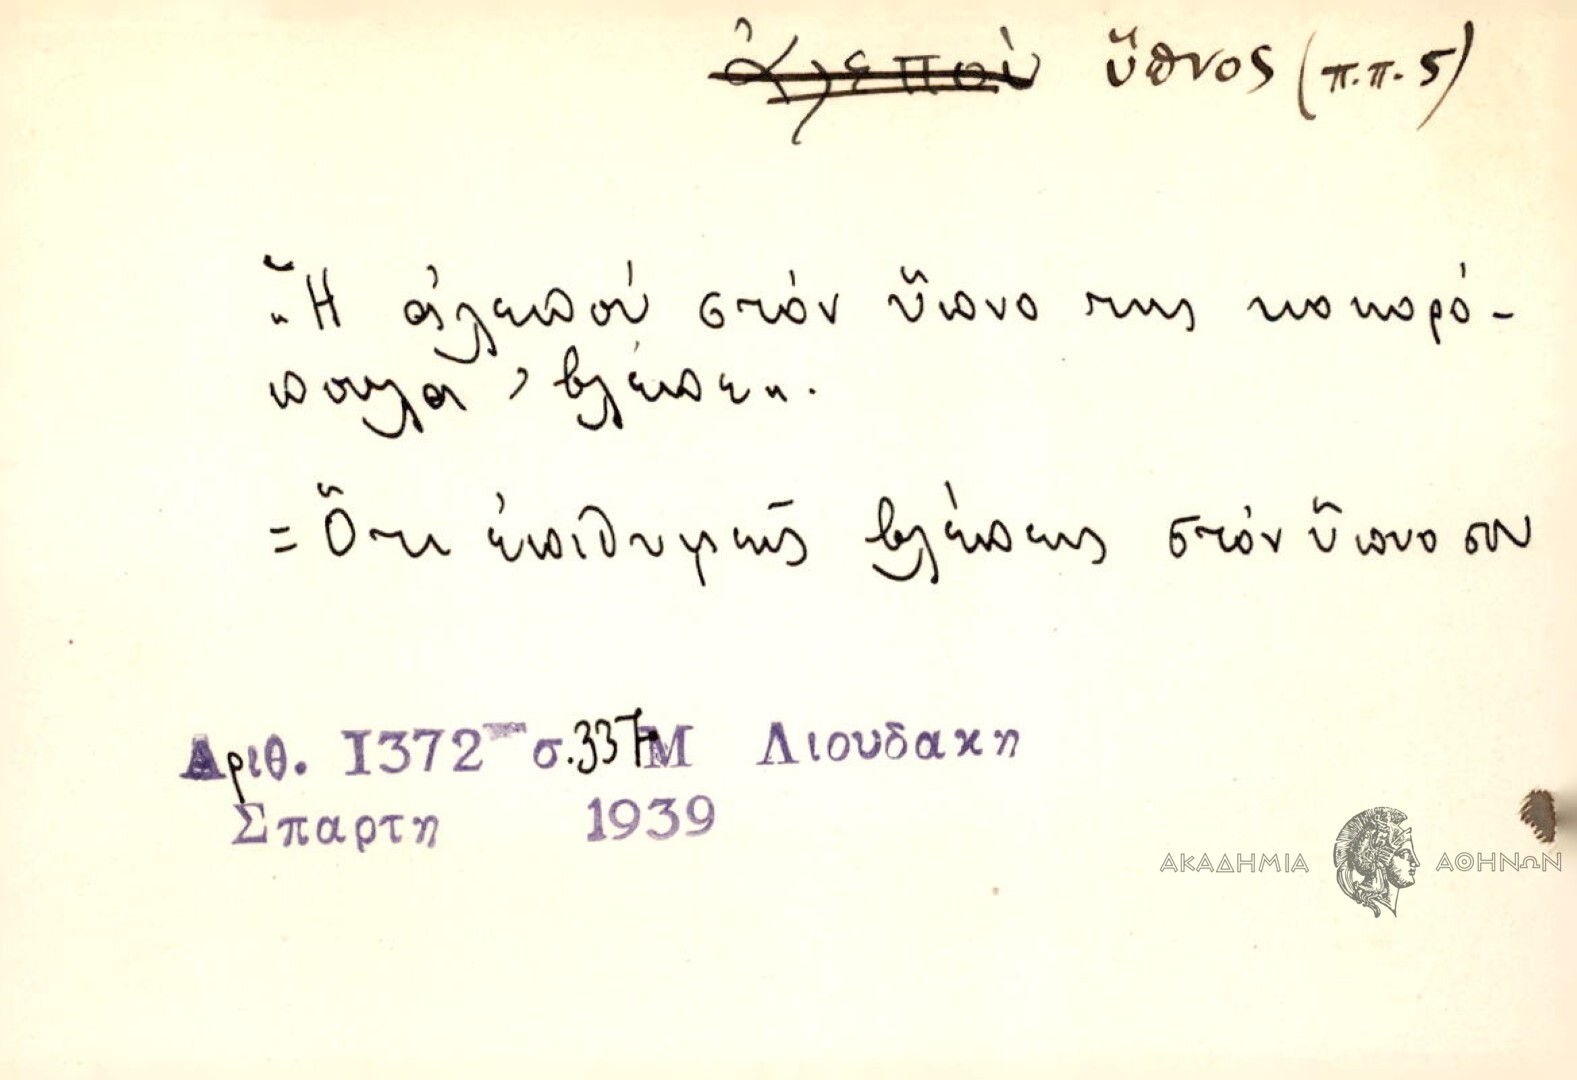 ἀλεποὺ ὕπνος (π.π. 5)
"Ἡ ἀλεποὺ στὸν ὕπνο της κοκορό-
πουλα, βλέπει".
= Ὅτι ἐπιθυμεῖς βλέπεις στὸν ὕπνο σου
Αριθ. 1372 σ. 337 Μ Λιουδακη
Σπαρτη 1939
ΑΚΑΔΗΜΙΑ ΑΘΗΝΩΝ